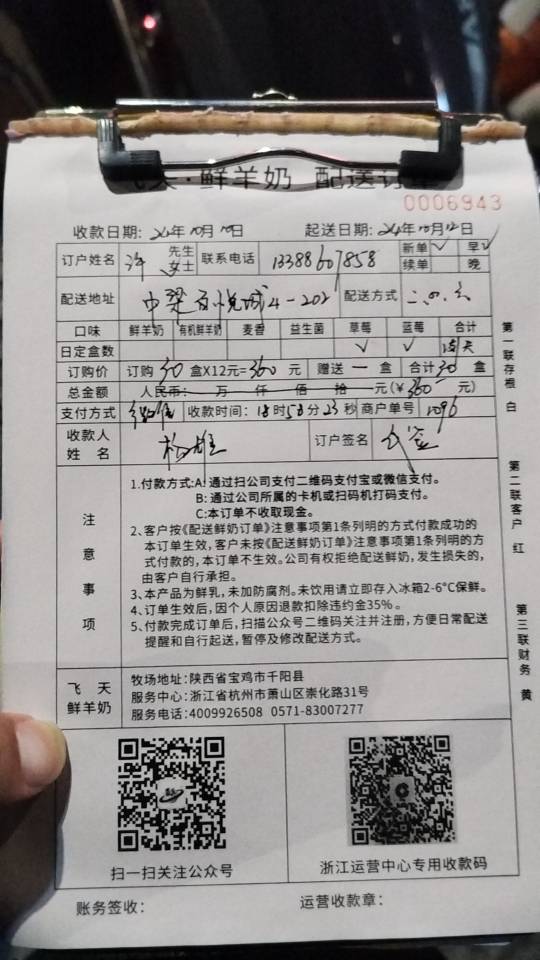 飞天·鲜羊奶 配送订单
0006943
收款日期: 24年10月10日 起送日期: 24年10月12日
订户姓名 许 先生 女士 联系电话 13388607858 新单 √ 早 √
续单 晚
配送地址 中梁百悦城4-202 配送方式 二.四.六
口味 鲜羊奶 有机鲜羊奶 麦香 益生菌 草莓 蓝莓 合计
日定盒数 √ √
订购价 订购30盒X12元=360元 赠送 — 盒 合计30盒
总金额 人民币: 万 仟 佰 拾 元(¥360 元)
支付方式 微信 收款时间: 18时58分23秒 商户单号 1096
收款人姓名 订户签名
注意事项
1.付款方式:A: 通过扫公司支付二维码支付宝或微信支付。
B: 通过公司所属的卡机或扫码机打码支付。
C:本订单不收取现金。
2、客户按《配送鲜奶订单》注意事项第1条列明的方式付款成功的
本订单生效，客户未按《配送鲜奶订单》注意事项第1条列明的方
式付款的，本订单不生效。公司有权拒绝配送鲜奶，发生损失的，
由客户自行承担。
3、本产品为鲜乳，未加防腐剂。未饮用请立即存入冰箱2-6°C保鲜。
4、订单生效后，因个人原因退款扣除违约金35%。
5、付款完成订单后，扫描公众号二维码关注并注册，方便日常配送
提醒和自行起送，暂停及修改配送方式。
飞天
鲜羊奶
牧场地址:陕西省宝鸡市千阳县
服务中心:浙江省杭州市萧山区崇化路31号
服务电话:4009926508 0571-83007277
扫一扫关注公众号 浙江运营中心专用收款码
账务签收: 运营收款章:
第一联存根 白
第二联客户 红
第三联财务 黄